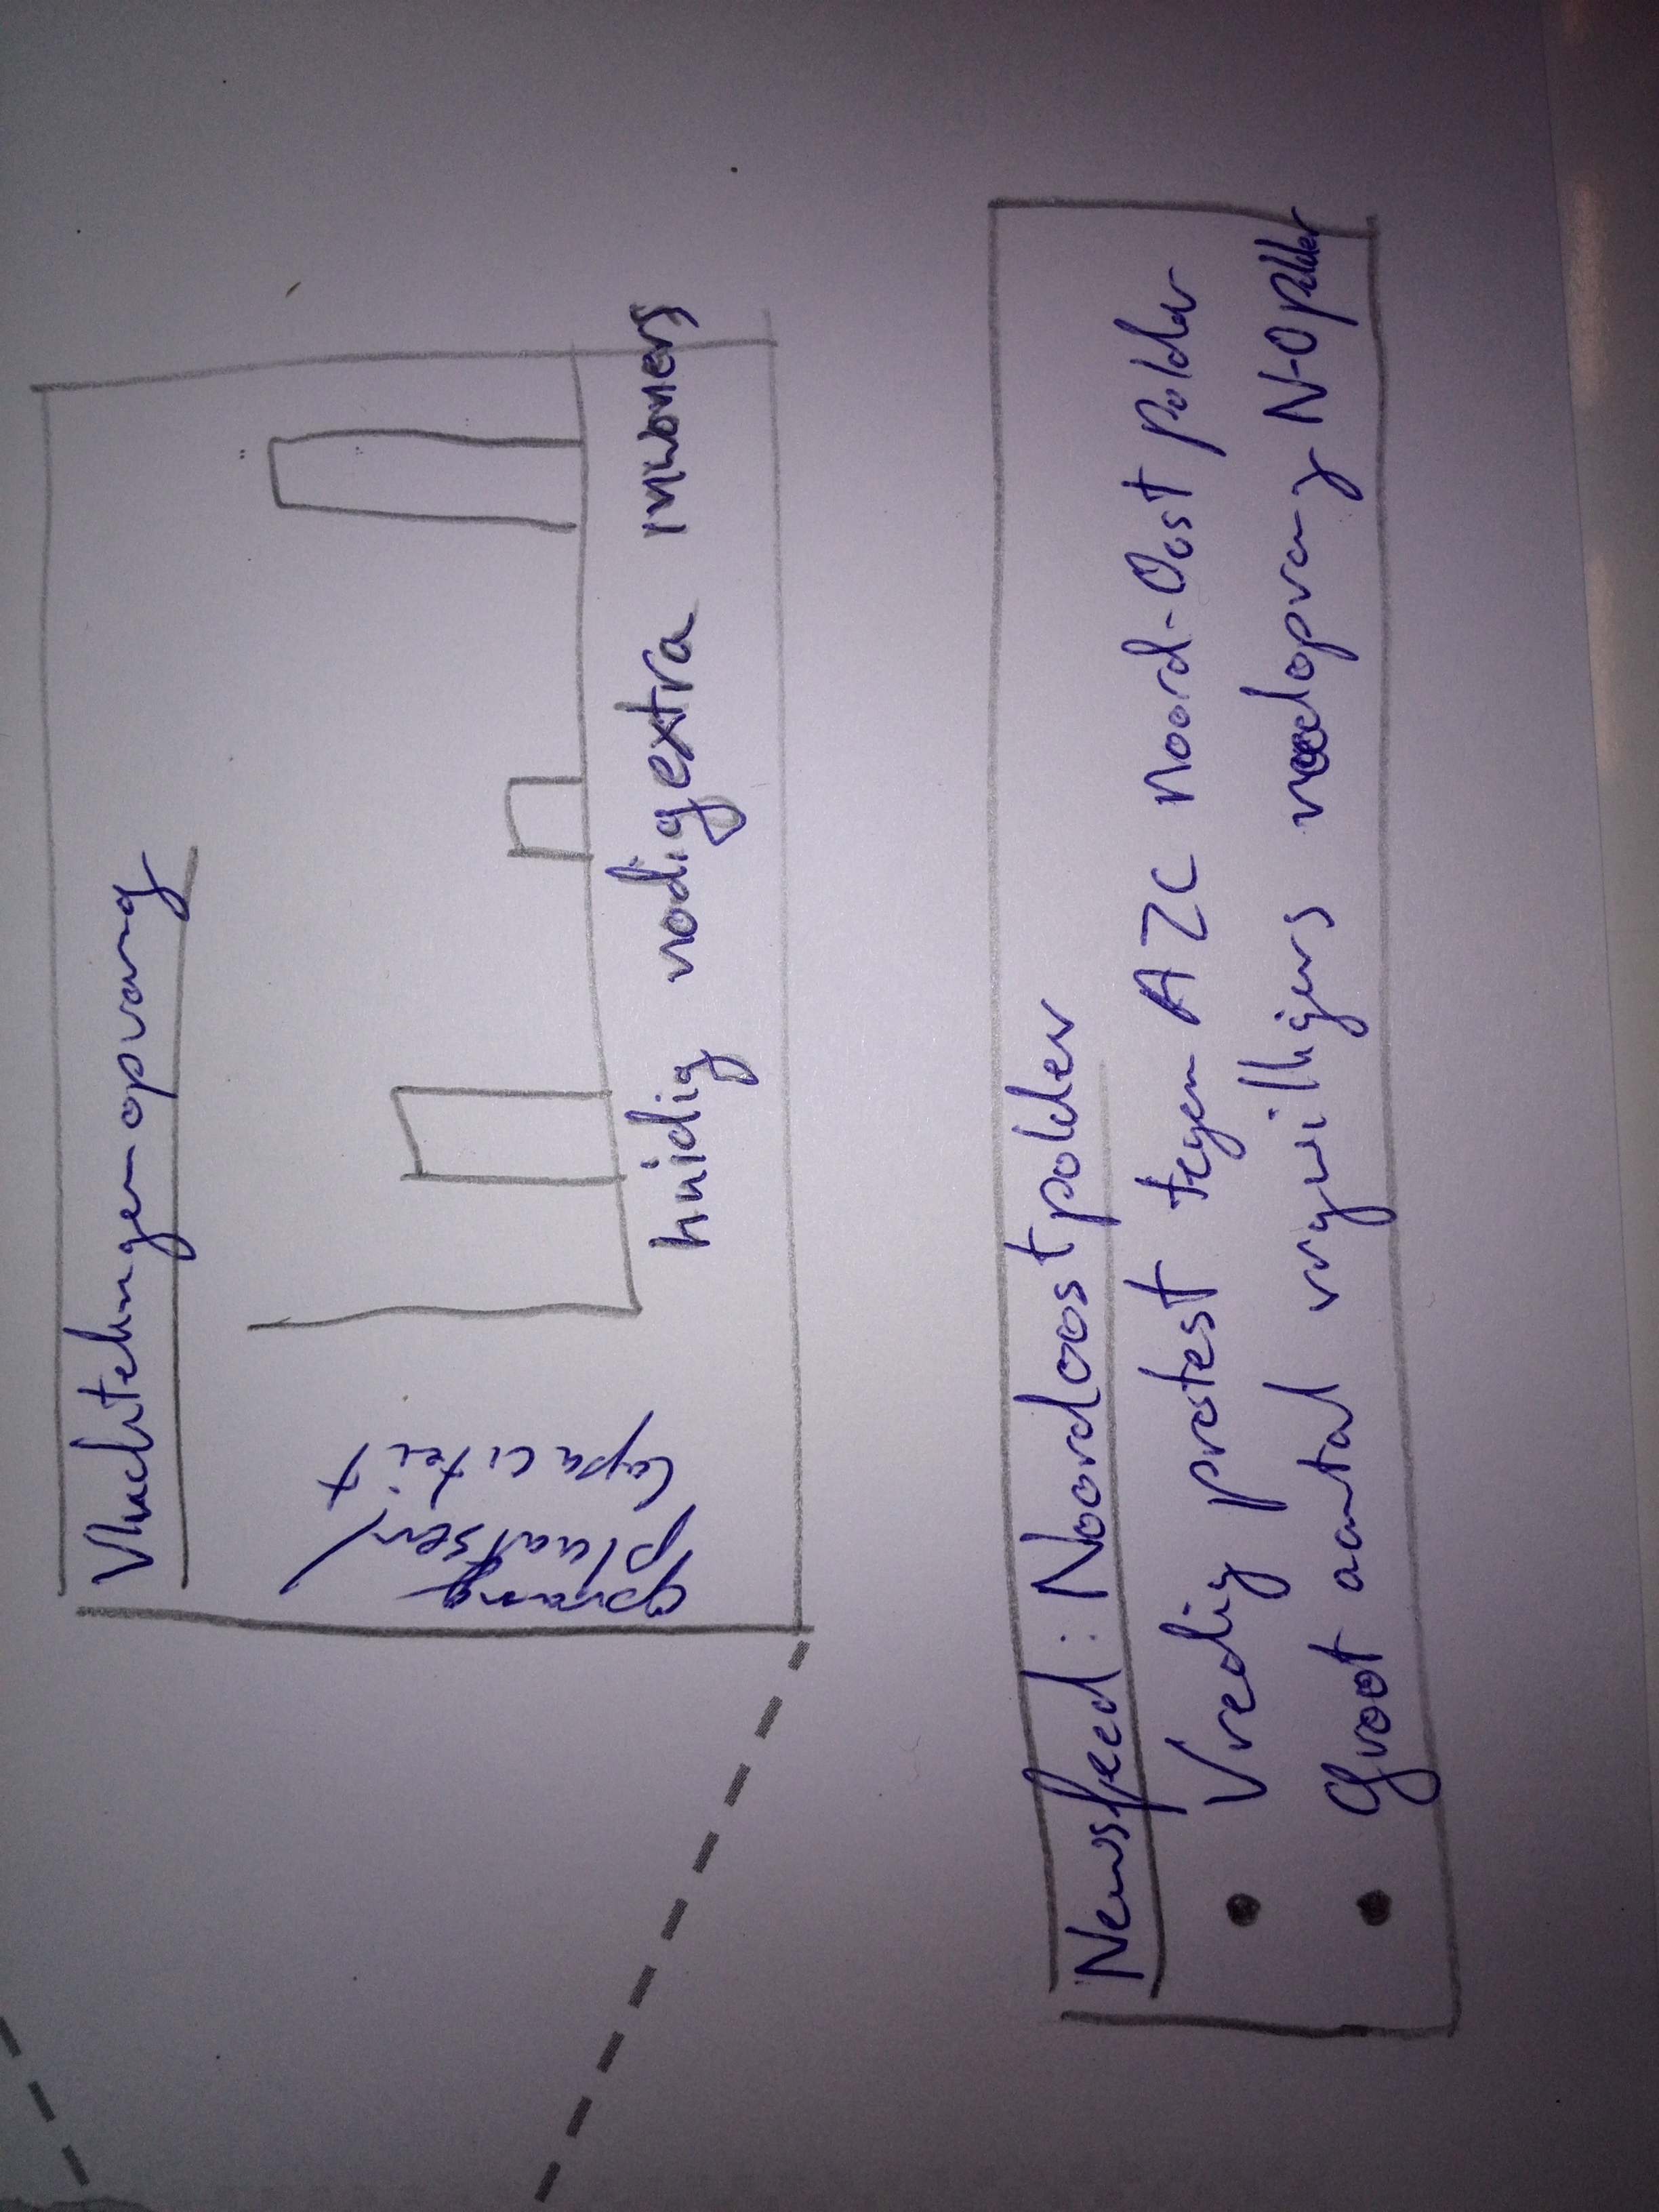 Vluchtelingenopvang
opvang
plaatsen/
capaciteit
huidig nodig extra inwoners
Newsfeed: Noordoostpolder
Vredig protest tegen AZC Noord-Oost polder
Groot aantal vrijwilligers noodopvang N-O polder